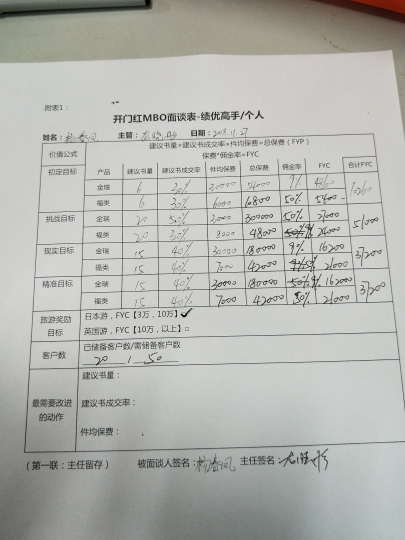 附表1：
开门红MBO面谈表-绩优高手/个人
姓名：杨春凤 主管： 日期：2018.11.27
价值公式 建议书量×建议书成交率×件均保费=总保费（FYP）
保费*佣金率=FYC
初定目标 产品 建议书量 建议书成交率 件均保费 总保费 佣金率 FYC 合计FYC
金瑞 6 30% 30000 54000 9% 4860 10260
福类 6 30% 6000 10800 50% 5400
挑战目标 金瑞 20 50% 300000 27000 51000
福类 20 8000 48000 24000
现实目标 金瑞 15 40% 30000 180000 9% 16200 37200
福类 15 40% 7000 42000 21000
精准目标 金瑞 15 40% 30000 180000 9% 16200 37200
福类 15 40% 7000 42000 50% 21000
旅游奖励目标 日本游，FYC【3万，10万】✓
英国游，FYC【10万，以上】□
客户数 已储备客户数/需储备客户数
20 / 50
最需要改进的动作 建议书量：
建议书成交率：
件均保费：
（第一联：主任留存） 被面谈人签名：杨春凤 主任签名：